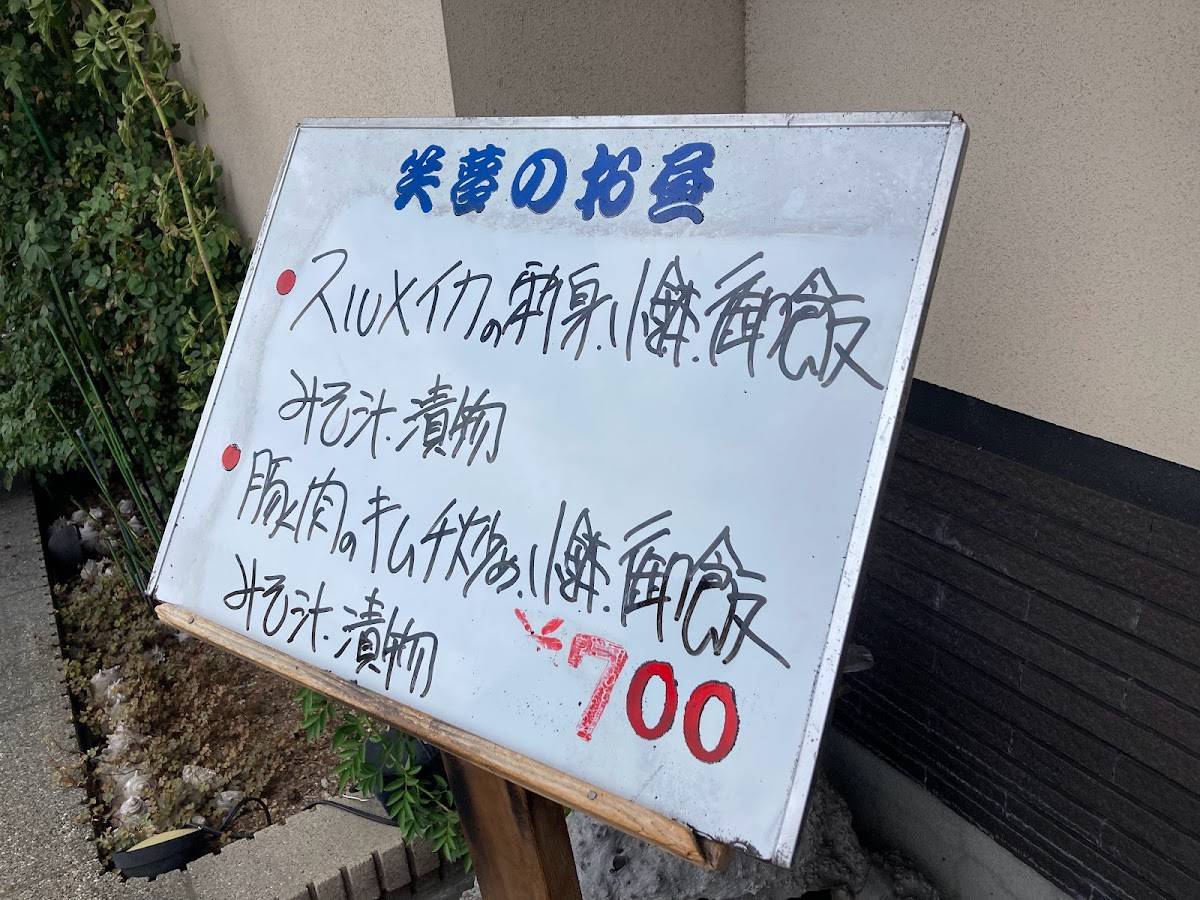 笑夢のお昼
スルメイカの刺身.小鉢.御飯
みそ汁.漬物
豚肉のキムチ炒め.小鉢.御飯
みそ汁.漬物
¥700